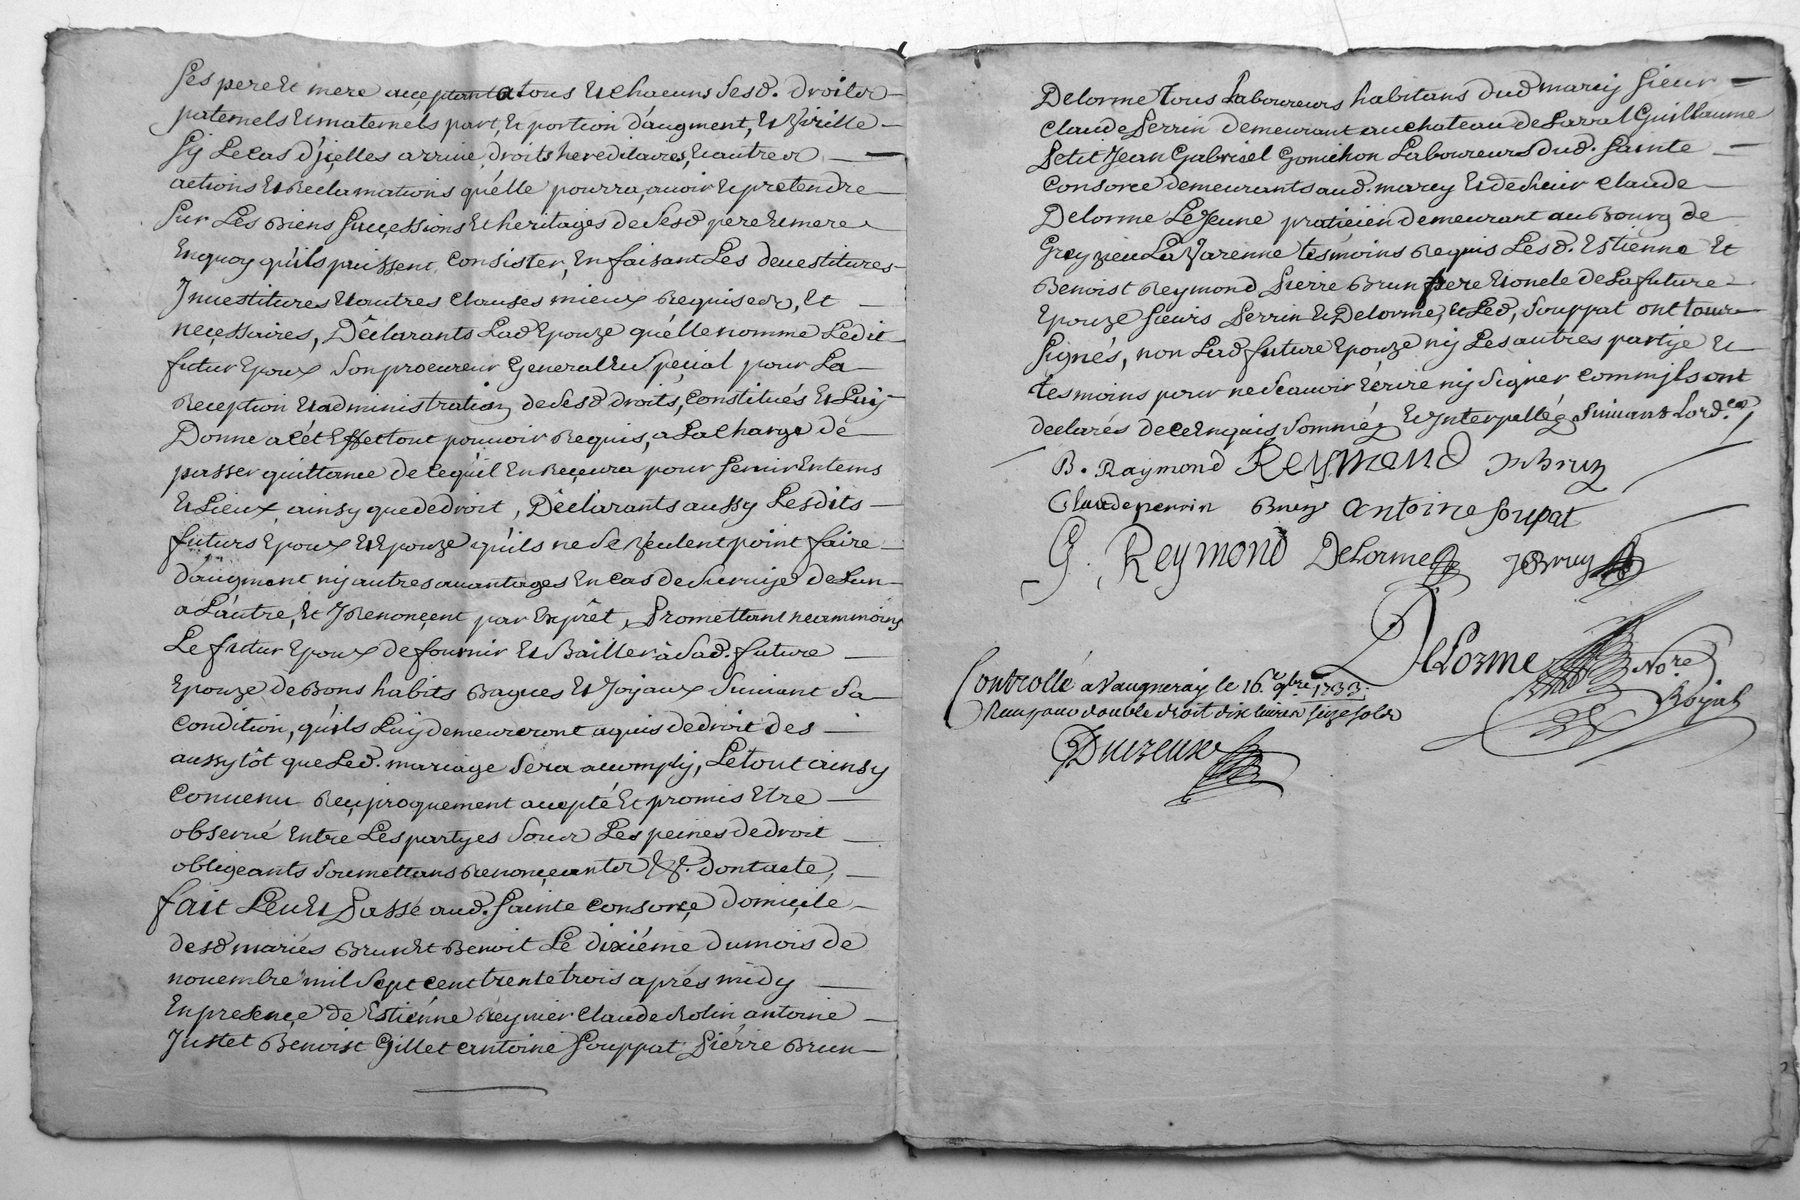 ses pere Et mere acceptant a tous Et chacuns sesd. droits
paternels Et maternels part, Et portion d'augment, Et Virille
sy Le cas d'jcelles arrive, droits hereditaires, Et autres
actions Et Reclamations qu'elle pourra, avoir Et pretendre
sur Les Biens successions Et heritages de sesd pere Et mere
En quoy qu'ils puissent consister, En faisant Les devestitures
Jnvestitures Et autres clauses mieux Requises, Et
necessaires, Déclarants Lad Epouze qu'elle nomme Ledit
futur Epoux son procureur General Et special pour La
Reception Et administration de sesd droits, constitués Et Luy
Donne a cét Effet tout pouvoir Requis, a La charge de
passer quittance de ce qu'il En Recevra pour servir En tems
Et Lieux ainsy que de droit, Déclarants aussy Lesdits
futurs Epoux Et Epouze qu'ils ne se veulent point faire
d'augment ny autres avantages En cas de survije de L'un
a L'autre, Et J Renoncent par Exprêt, Promettant neammoins
Le futur Epoux de fournir Et Bailler à sad. future
Epouze de Bons habits Bagues Et Joyaux suivant sa
condition, qu'ils Luy demeureront aquis de droit des
aussytôt que Led. mariage sera accomply, Le tout ainsy
convenu Reciproquement accepté Et promis Etre
observé Entre Les partyes sous Les peines de droit
obligeants soumettans Renonceants &c. dont acte,
fait Leu Et Passé aud. sainte consorce Domicile
desd mariés Brun Et Benoit Le dixiéme du mois de
novembre mil sept cent trente trois aprés midy
En presence de Estiénne Reynier Claude Rolin antoine
Justet Benoist Gillet antoine souppat Piérre Brun
Delorme Tous Laboureurs habitans dud marcy sieur
Claude Perrin demeurant au chateau de Larval Guillaume
Petit Jean Gabriel Gonichon Laboureurs dud. sainte
consorce demeurants aud. marcy Et de sieur claude
Delorme Le Jeune praticien demeurant au Bourg de
Grezieu La Varenne tesmoins Requis Lesd. Estienne Et
Benoist Reymond Pierre Brun pere Et oncle de La future
Epouze sieurs Perrin Et Delorme, Et Led, souppat ont tous
signés, non Lad future Epouze ny Les autres partije Et
tesmoins pour ne scavoir Ecrire ny signer comm jls ont
declarés de ce Enquis sommés Et Jnterpellés suivant Lord.ce
B. Raymond REYMOND Brun
Claude perrin Bruy antoine soupat
G. Reymond Delorme JBruy
DeLorme No.re
Royal
Controllé a Vaugneray le 16.e 9bre 1733.
Reçu pour double droit dix livres seize sols
Duzeux